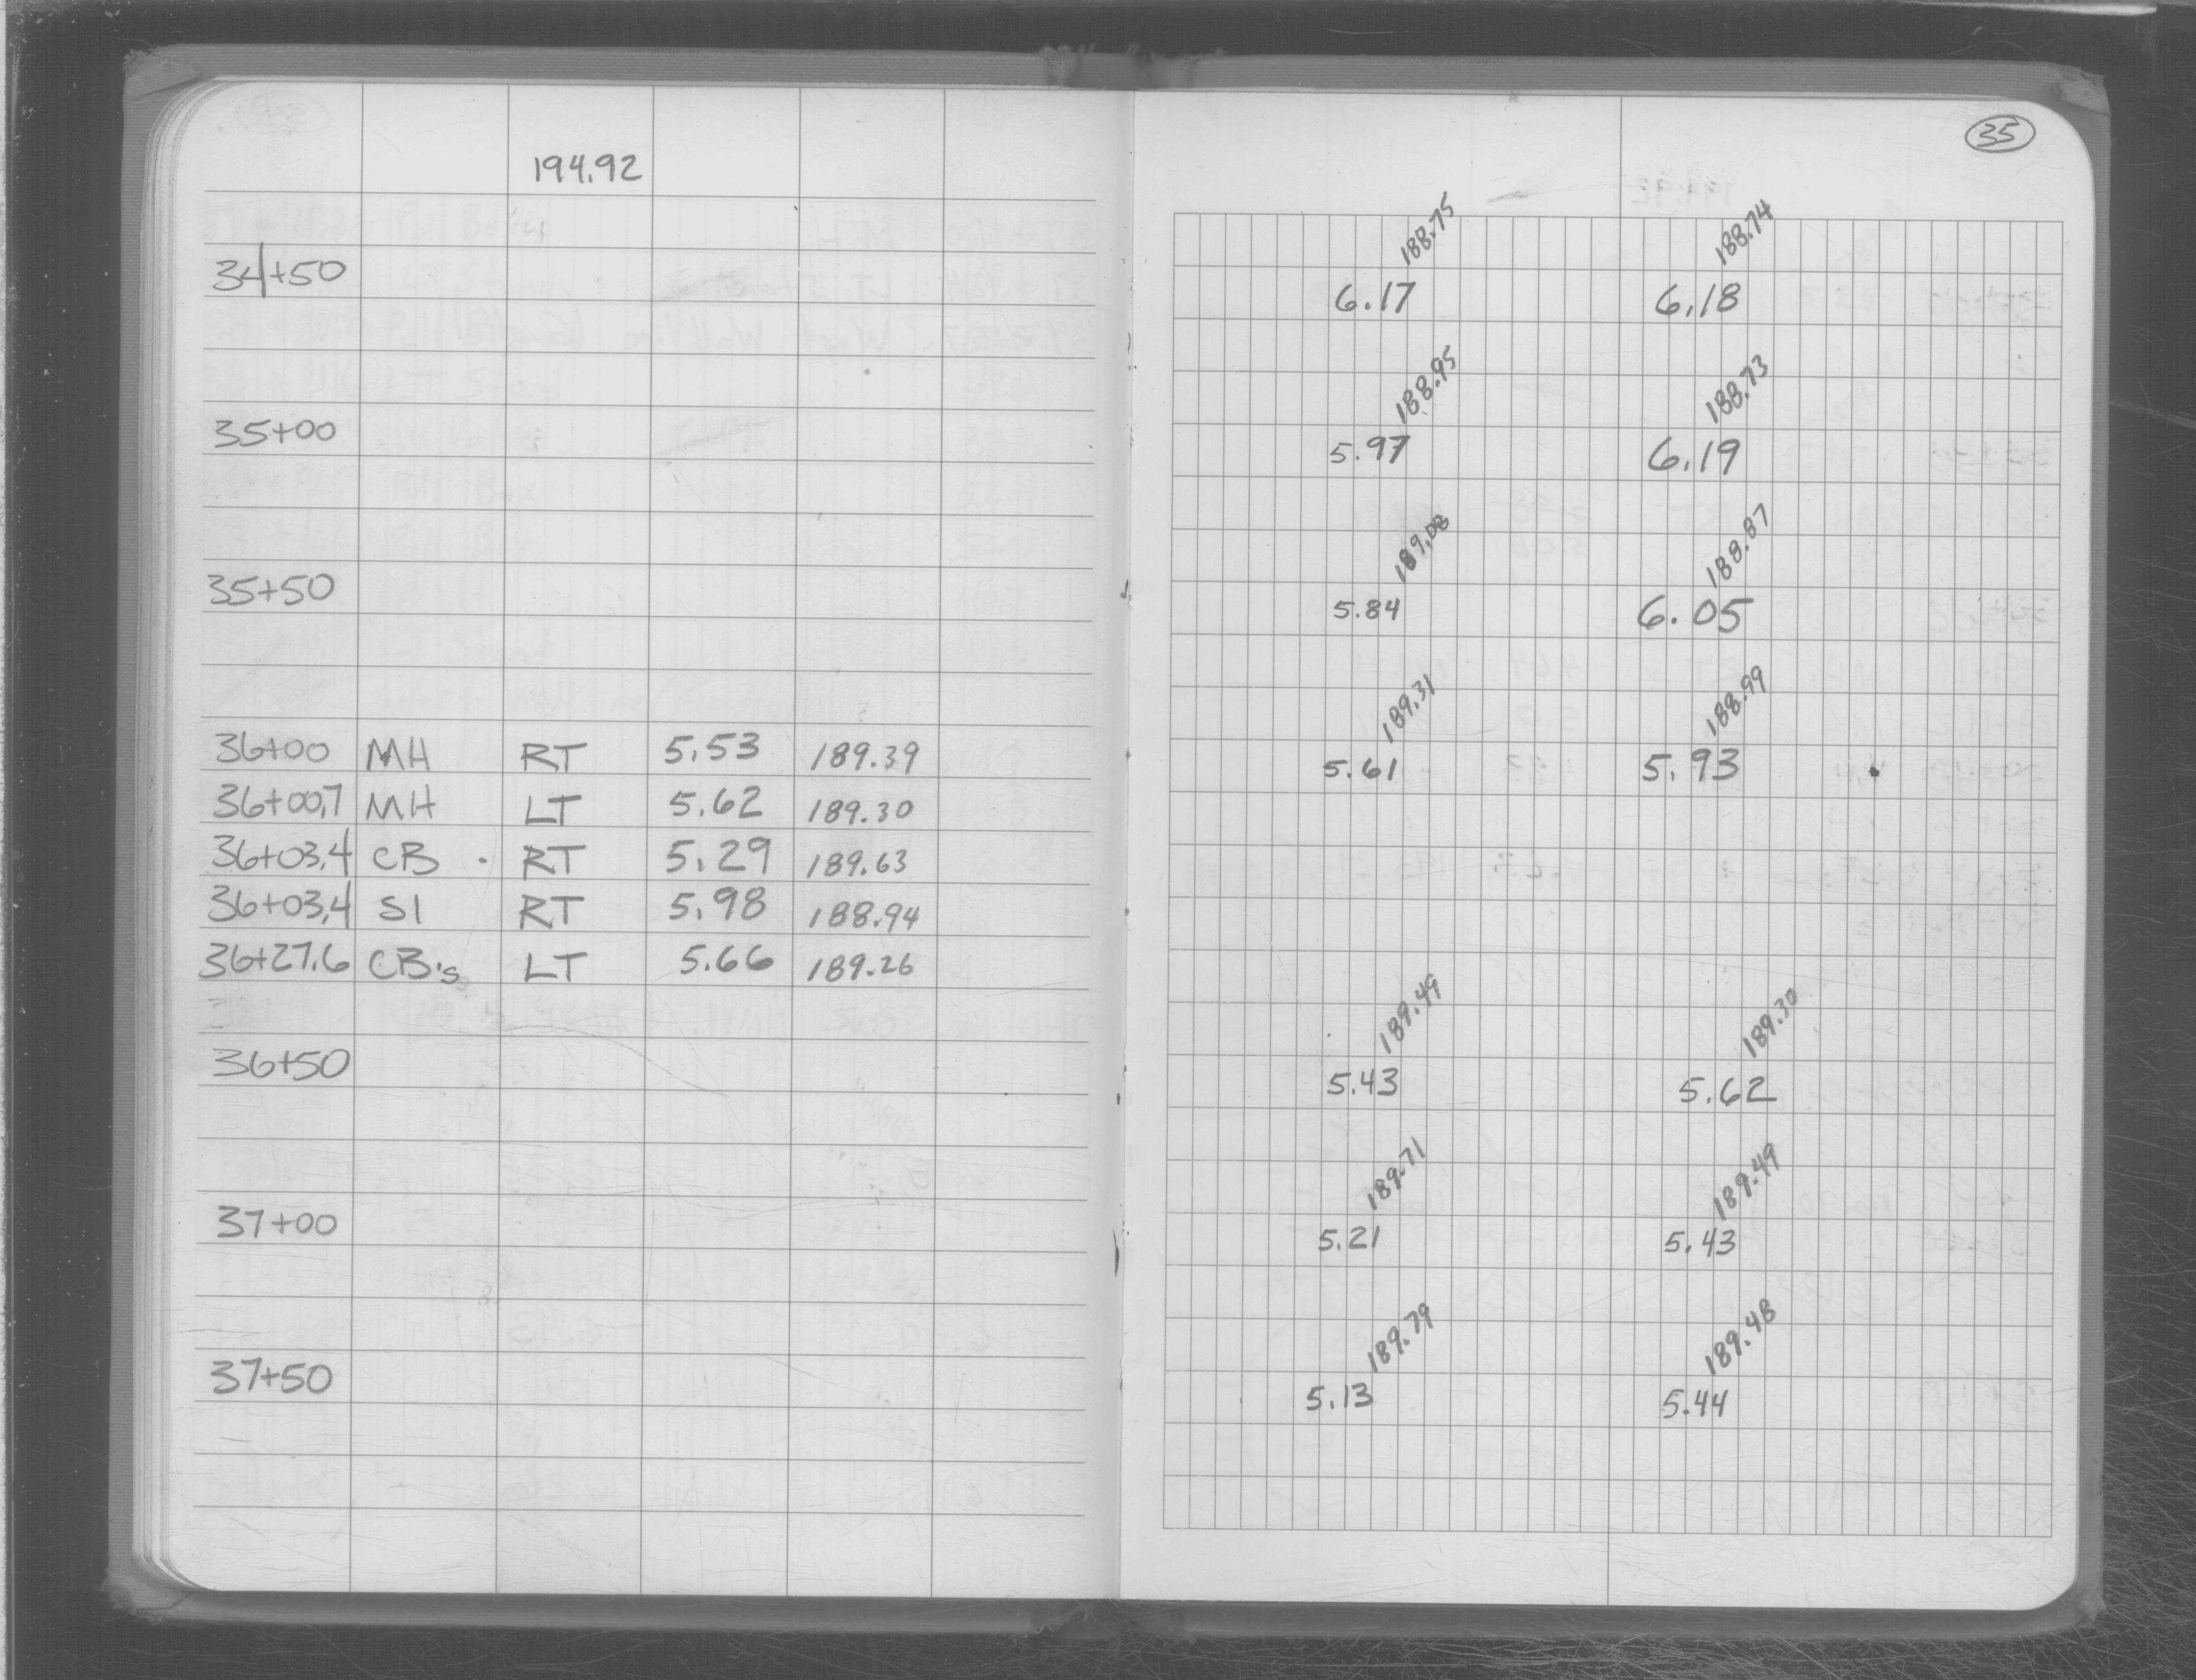 35
194.92
188.75 188.74
34+50 6.17 6.18
188.95 188.73
35+00 5.97 6.19
189.08 188.87
35+50 5.84 6.05
189.31 188.99
36+00 MH RT 5.53 189.39 5.61 5.93
36+00.7 MH LT 5.62 189.30
36+03.4 CB RT 5.29 189.63
36+03.4 SI RT 5.98 188.94
36+27.6 CB's LT 5.66 189.26
189.49 189.30
36+50 5.43 5.62
189.71 189.49
37+00 5.21 5.43
189.79 189.48
37+50 5.13 5.44